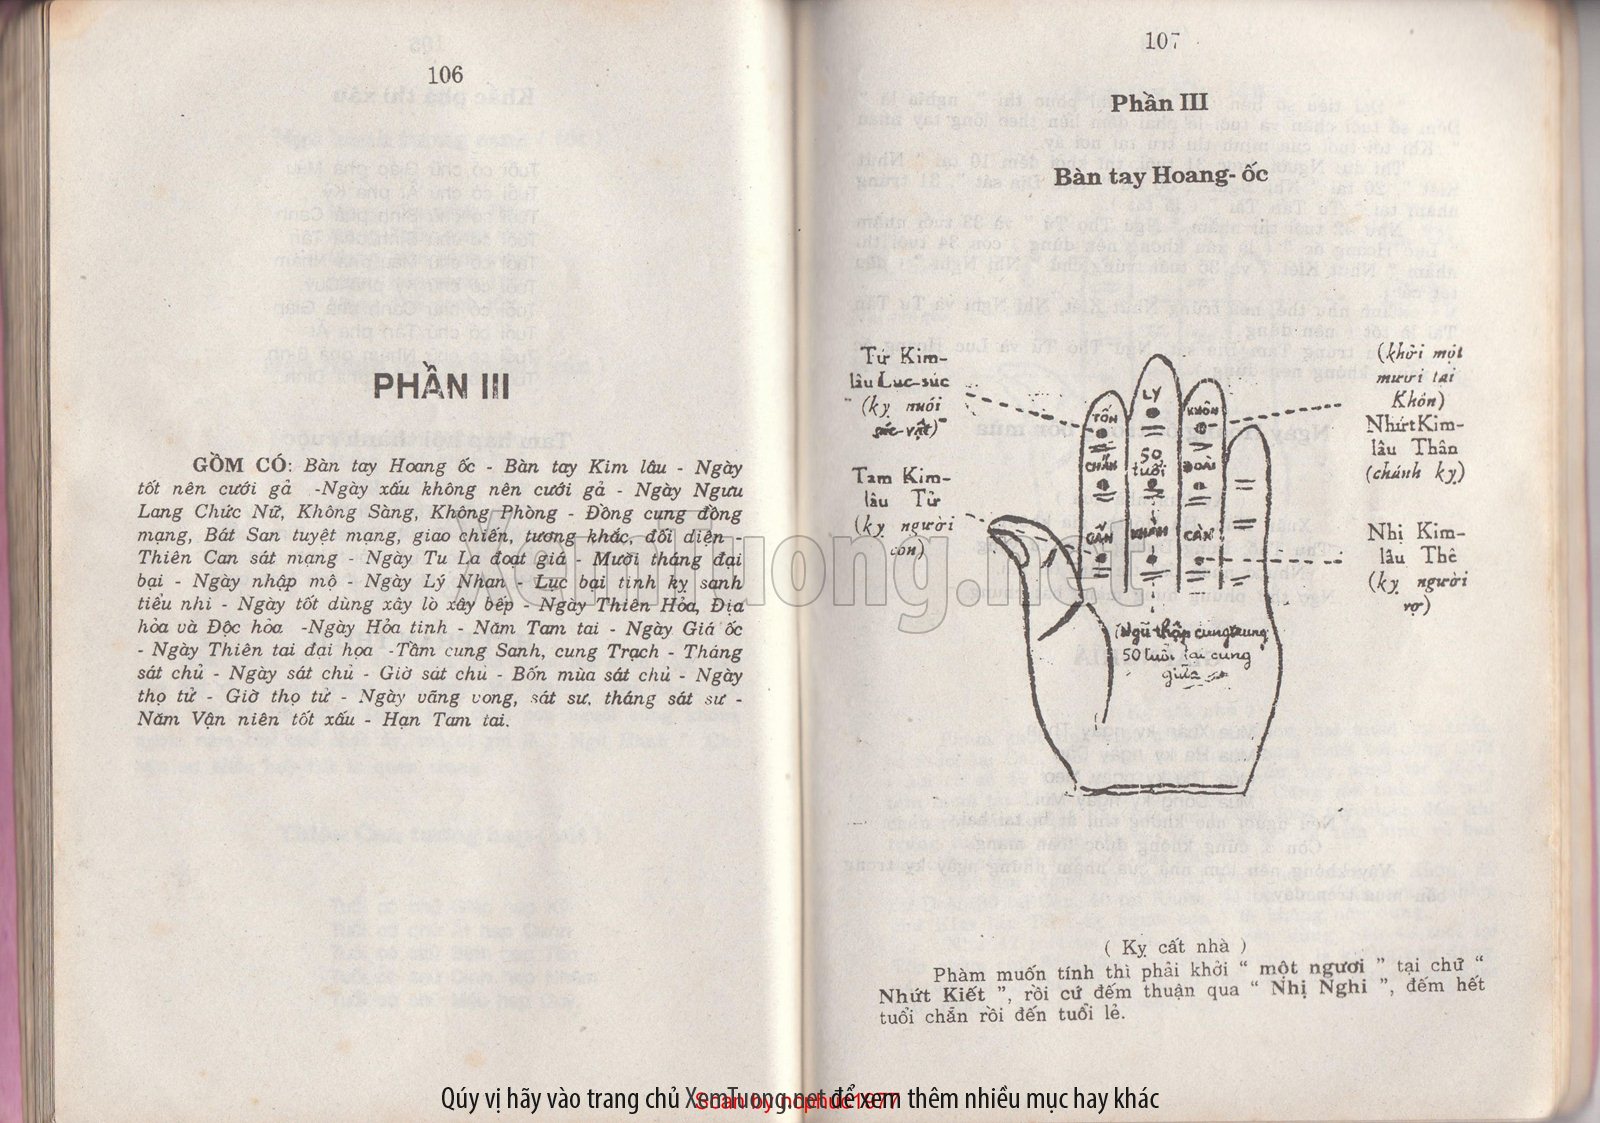 106
PHẦN III
GỒM CÓ: Bàn tay Hoang ốc - Bàn tay Kim lâu - Ngày
tốt nên cưới gả -Ngày xấu không nên cưới gả - Ngày Ngưu
Lang Chức Nữ, Không Sàng, Không Phòng - Đồng cung đồng
mạng, Bát San tuyệt mạng, giao chiến, tương khắc, đối diện -
Thiên Can sát mạng - Ngày Tu La đoạt giá - Mười tháng đại
bại - Ngày nhập mộ - Ngày Lý Nhan - Lục bại tinh kỵ sanh
tiểu nhi - Ngày tốt dùng xây lò xây bếp - Ngày Thiên Hỏa, Địa
hỏa và Độc hỏa -Ngày Hỏa tinh - Năm Tam tai - Ngày Giá ốc
- Ngày Thiên tai đại họa -Tầm cung Sanh, cung Trạch - Tháng
sát chủ - Ngày sát chủ - Giờ sát chủ - Bốn mùa sát chủ - Ngày
thọ tử - Giờ thọ tử - Ngày vãng vong, sát sư, tháng sát sư -
Năm Vận niên tốt xấu - Hạn Tam tai.
107
Phần III
Bàn tay Hoang- ốc
Tứ Kim-
lâu Lục-súc
(kỵ nuôi
súc-vật)
Tam Kim-
lâu Tử
(kỵ người
con)
(khởi một
mươi tại
Khôn)
Nhứt Kim-
lâu Thân
(chánh kỵ)
Nhị Kim-
lâu Thê
(kỵ người
vợ)
TỐN
LÝ
KHÔN
CHẤN
50
tuổi
ĐOÀI
CẤN
KHẢM
CÀN
(Ngũ thập cung trung
50 tuổi tại cung
giữa
( Kỵ cất nhà )
Phàm muốn tính thì phải khởi “ một ngươi ” tại chữ “
Nhứt Kiết ”, rồi cứ đếm thuận qua “ Nhị Nghi ”, đếm hết
tuổi chẵn rồi đến tuổi lẻ.
XemTuong.net
Qúy vị hãy vào trang chủ XemTuong.net để xem thêm nhiều mục hay khác
Scan by